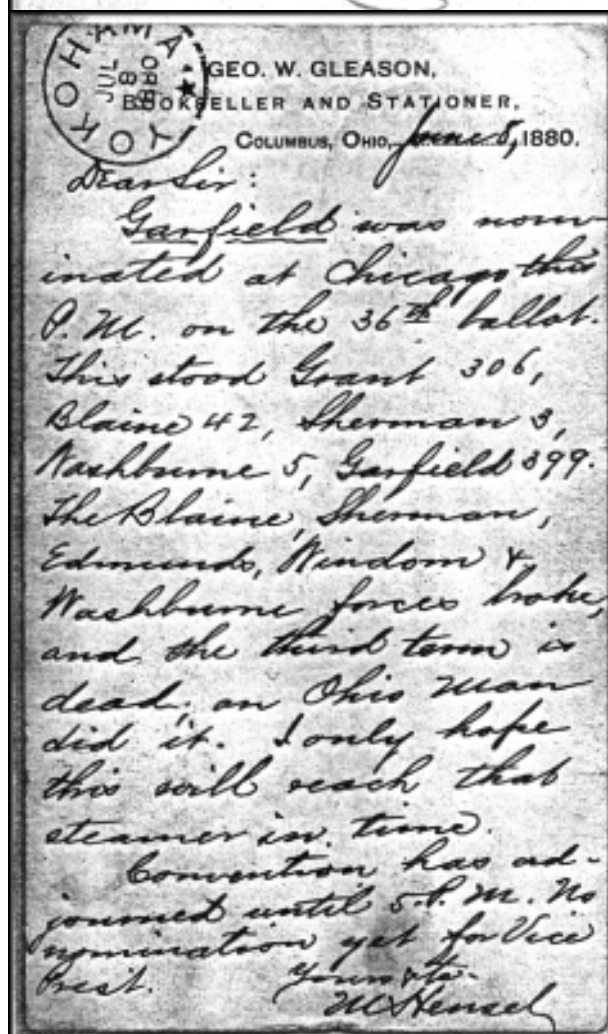 YOKOHAMA
JUL
8
1880
GEO. W. GLEASON,
BOOKSELLER AND STATIONER,
COLUMBUS, OHIO, June 8, 1880.
Dear Sir:
Garfield was nom-
inated at Chicago this
P. M. on the 36th ballot.
This stood Grant 306,
Blaine 42, Sherman 3,
Washburne 5, Garfield 399.
The Blaine, Sherman,
Edmunds, Windom &
Washburne forces broke,
and the third term is
dead; an Ohio man
did it. I only hope
this will reach that
steamer in time.
Convention has ad-
journed until 5 P. M. No
nomination yet for Vice
Prest. Yours &c-
M Hensel